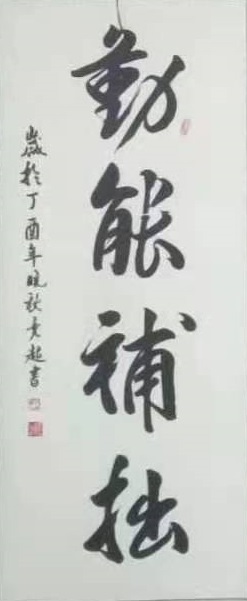 勤能補拙
歲於丁酉年晚秋贵超書